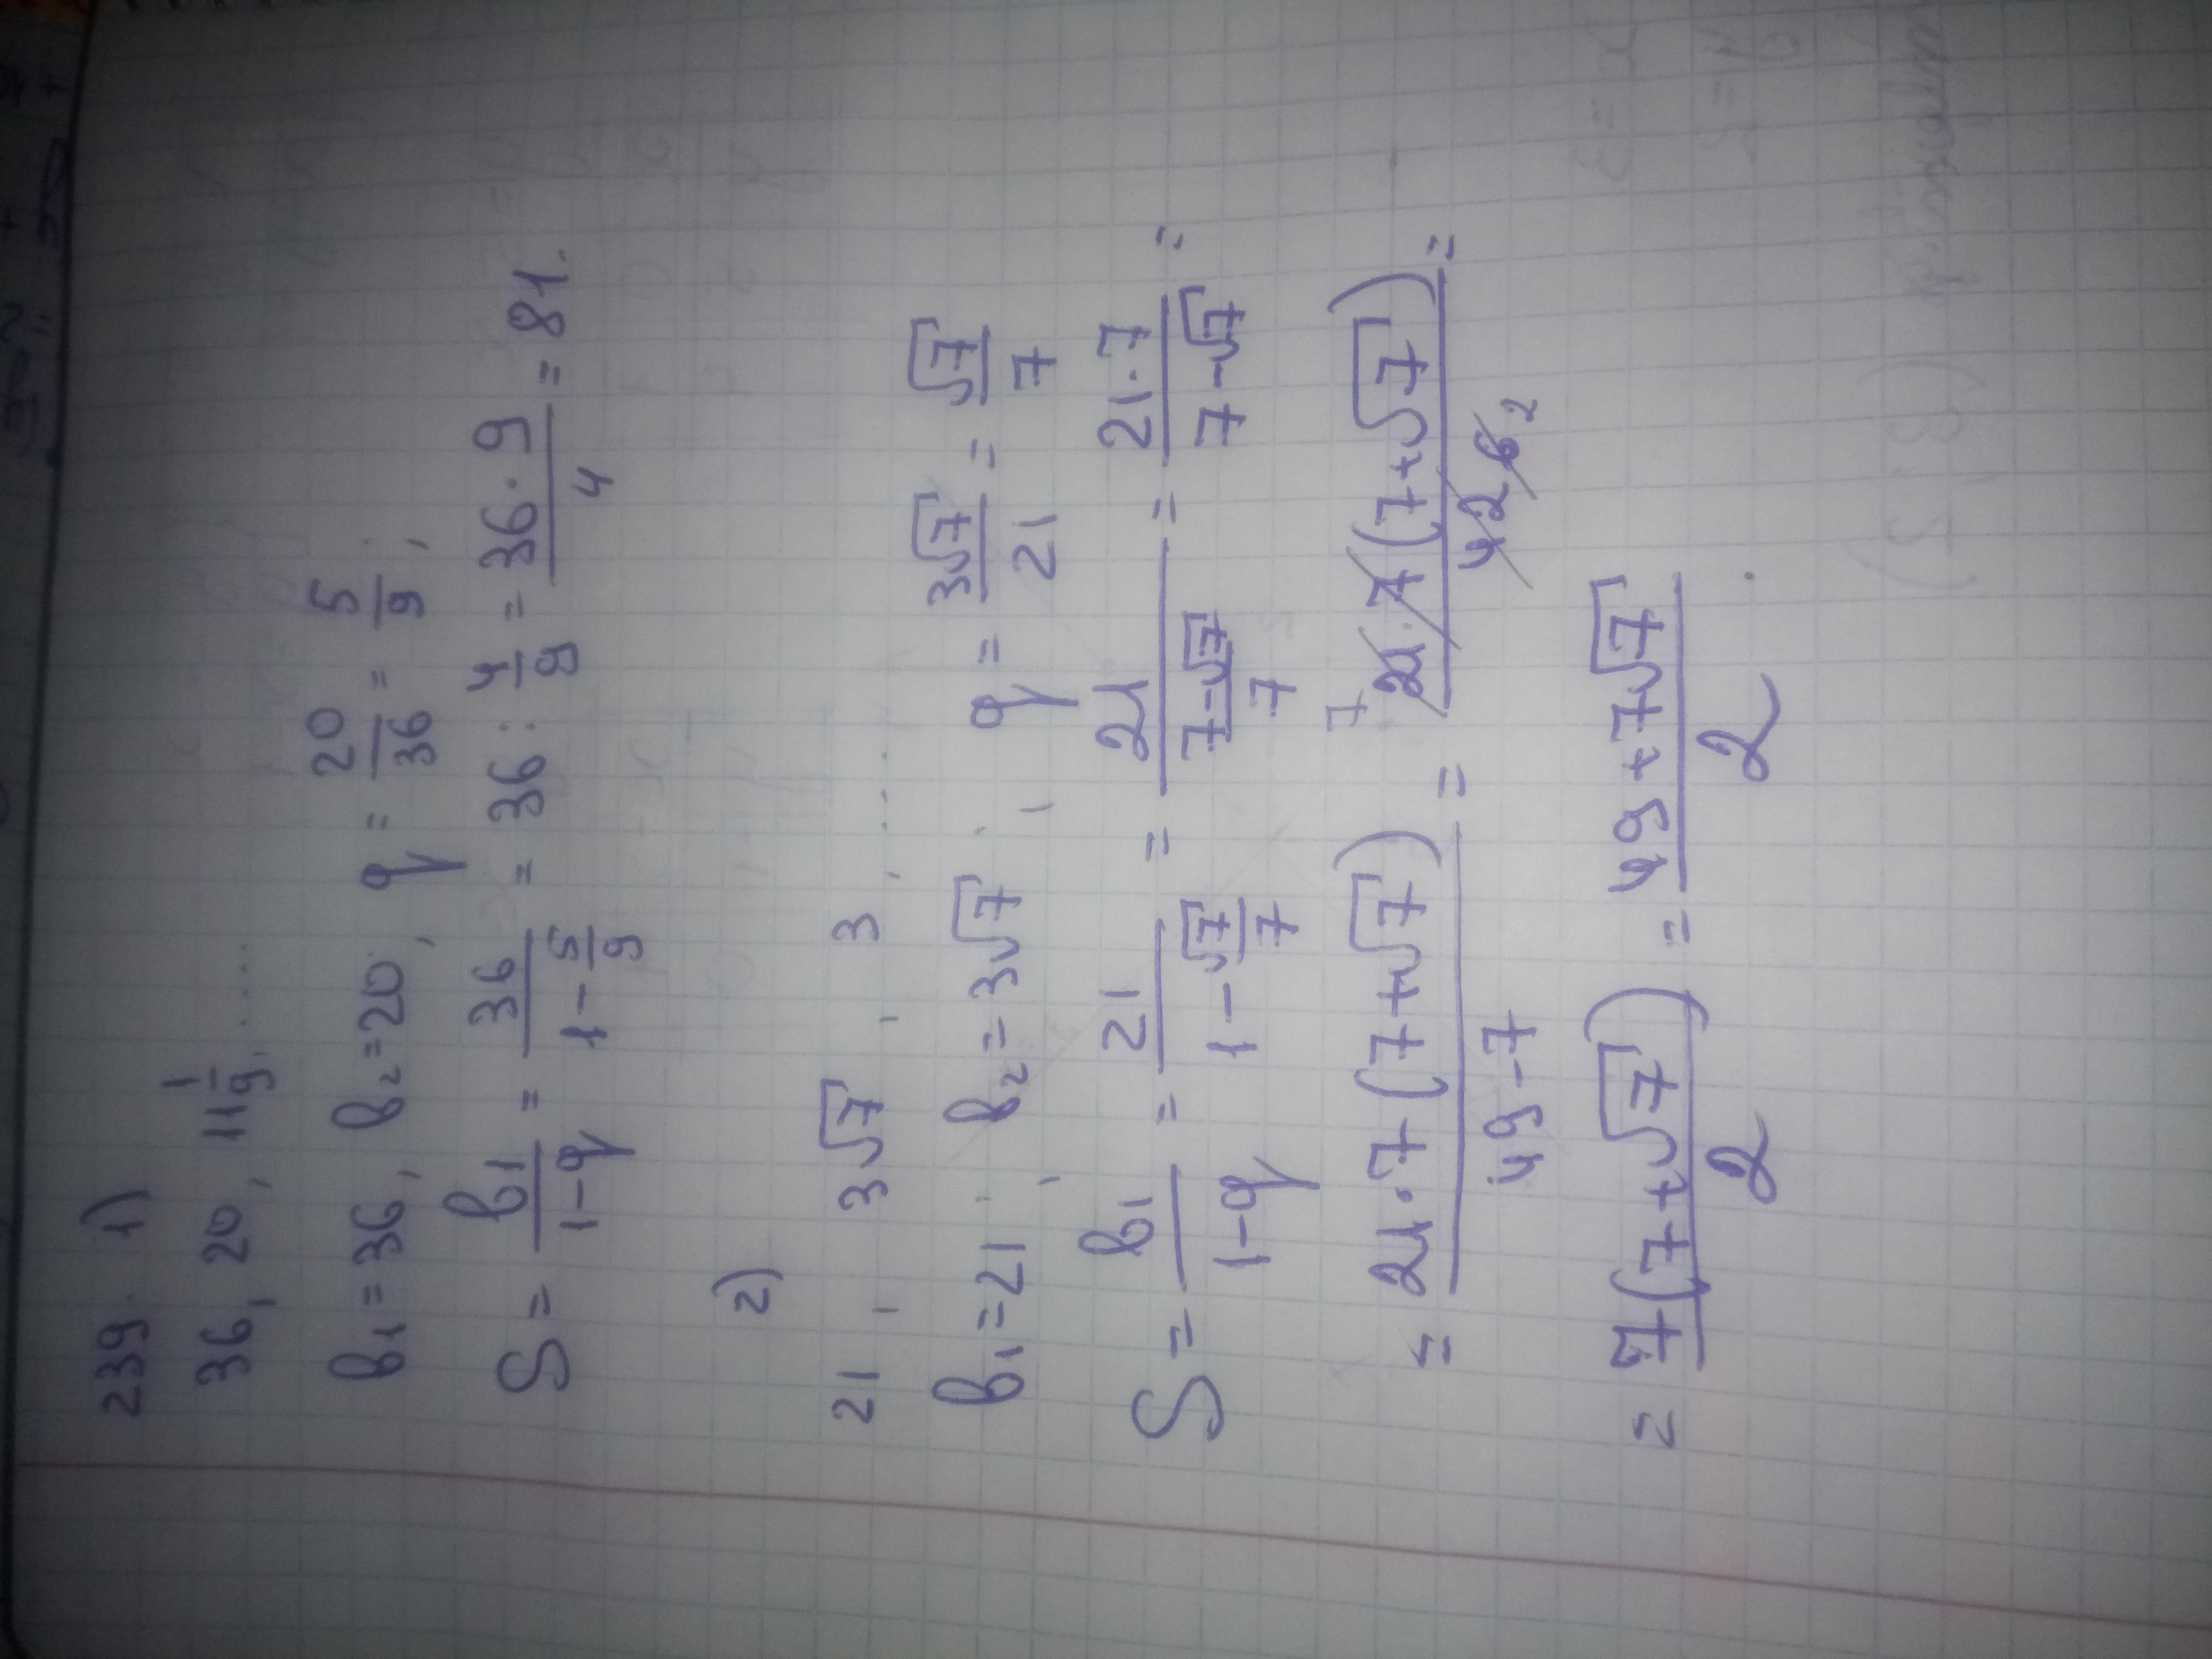 239. 1)
36, 20, 11 1/9, .....
b₁ = 36, b₂ = 20, q = 20/36 = 5/9;
S = b₁/(1-q) = 36/(1 - 5/9) = 36 : 4/9 = (36 · 9)/4 = 81.
2)
21, 3√7, 3, ....
b₁ = 21; b₂ = 3√7; q = 3√7/21 = √7/7
S = b₁/(1-q) = 21/(1 - √7/7) = 21/((7-√7)/7) = (21·7)/(7-√7) =
= (21·7(7+√7))/(49-7) = 7 (21·7(7+√7))/(42 6 2) =
= 7(7+√7)/2 = (49+7√7)/2.